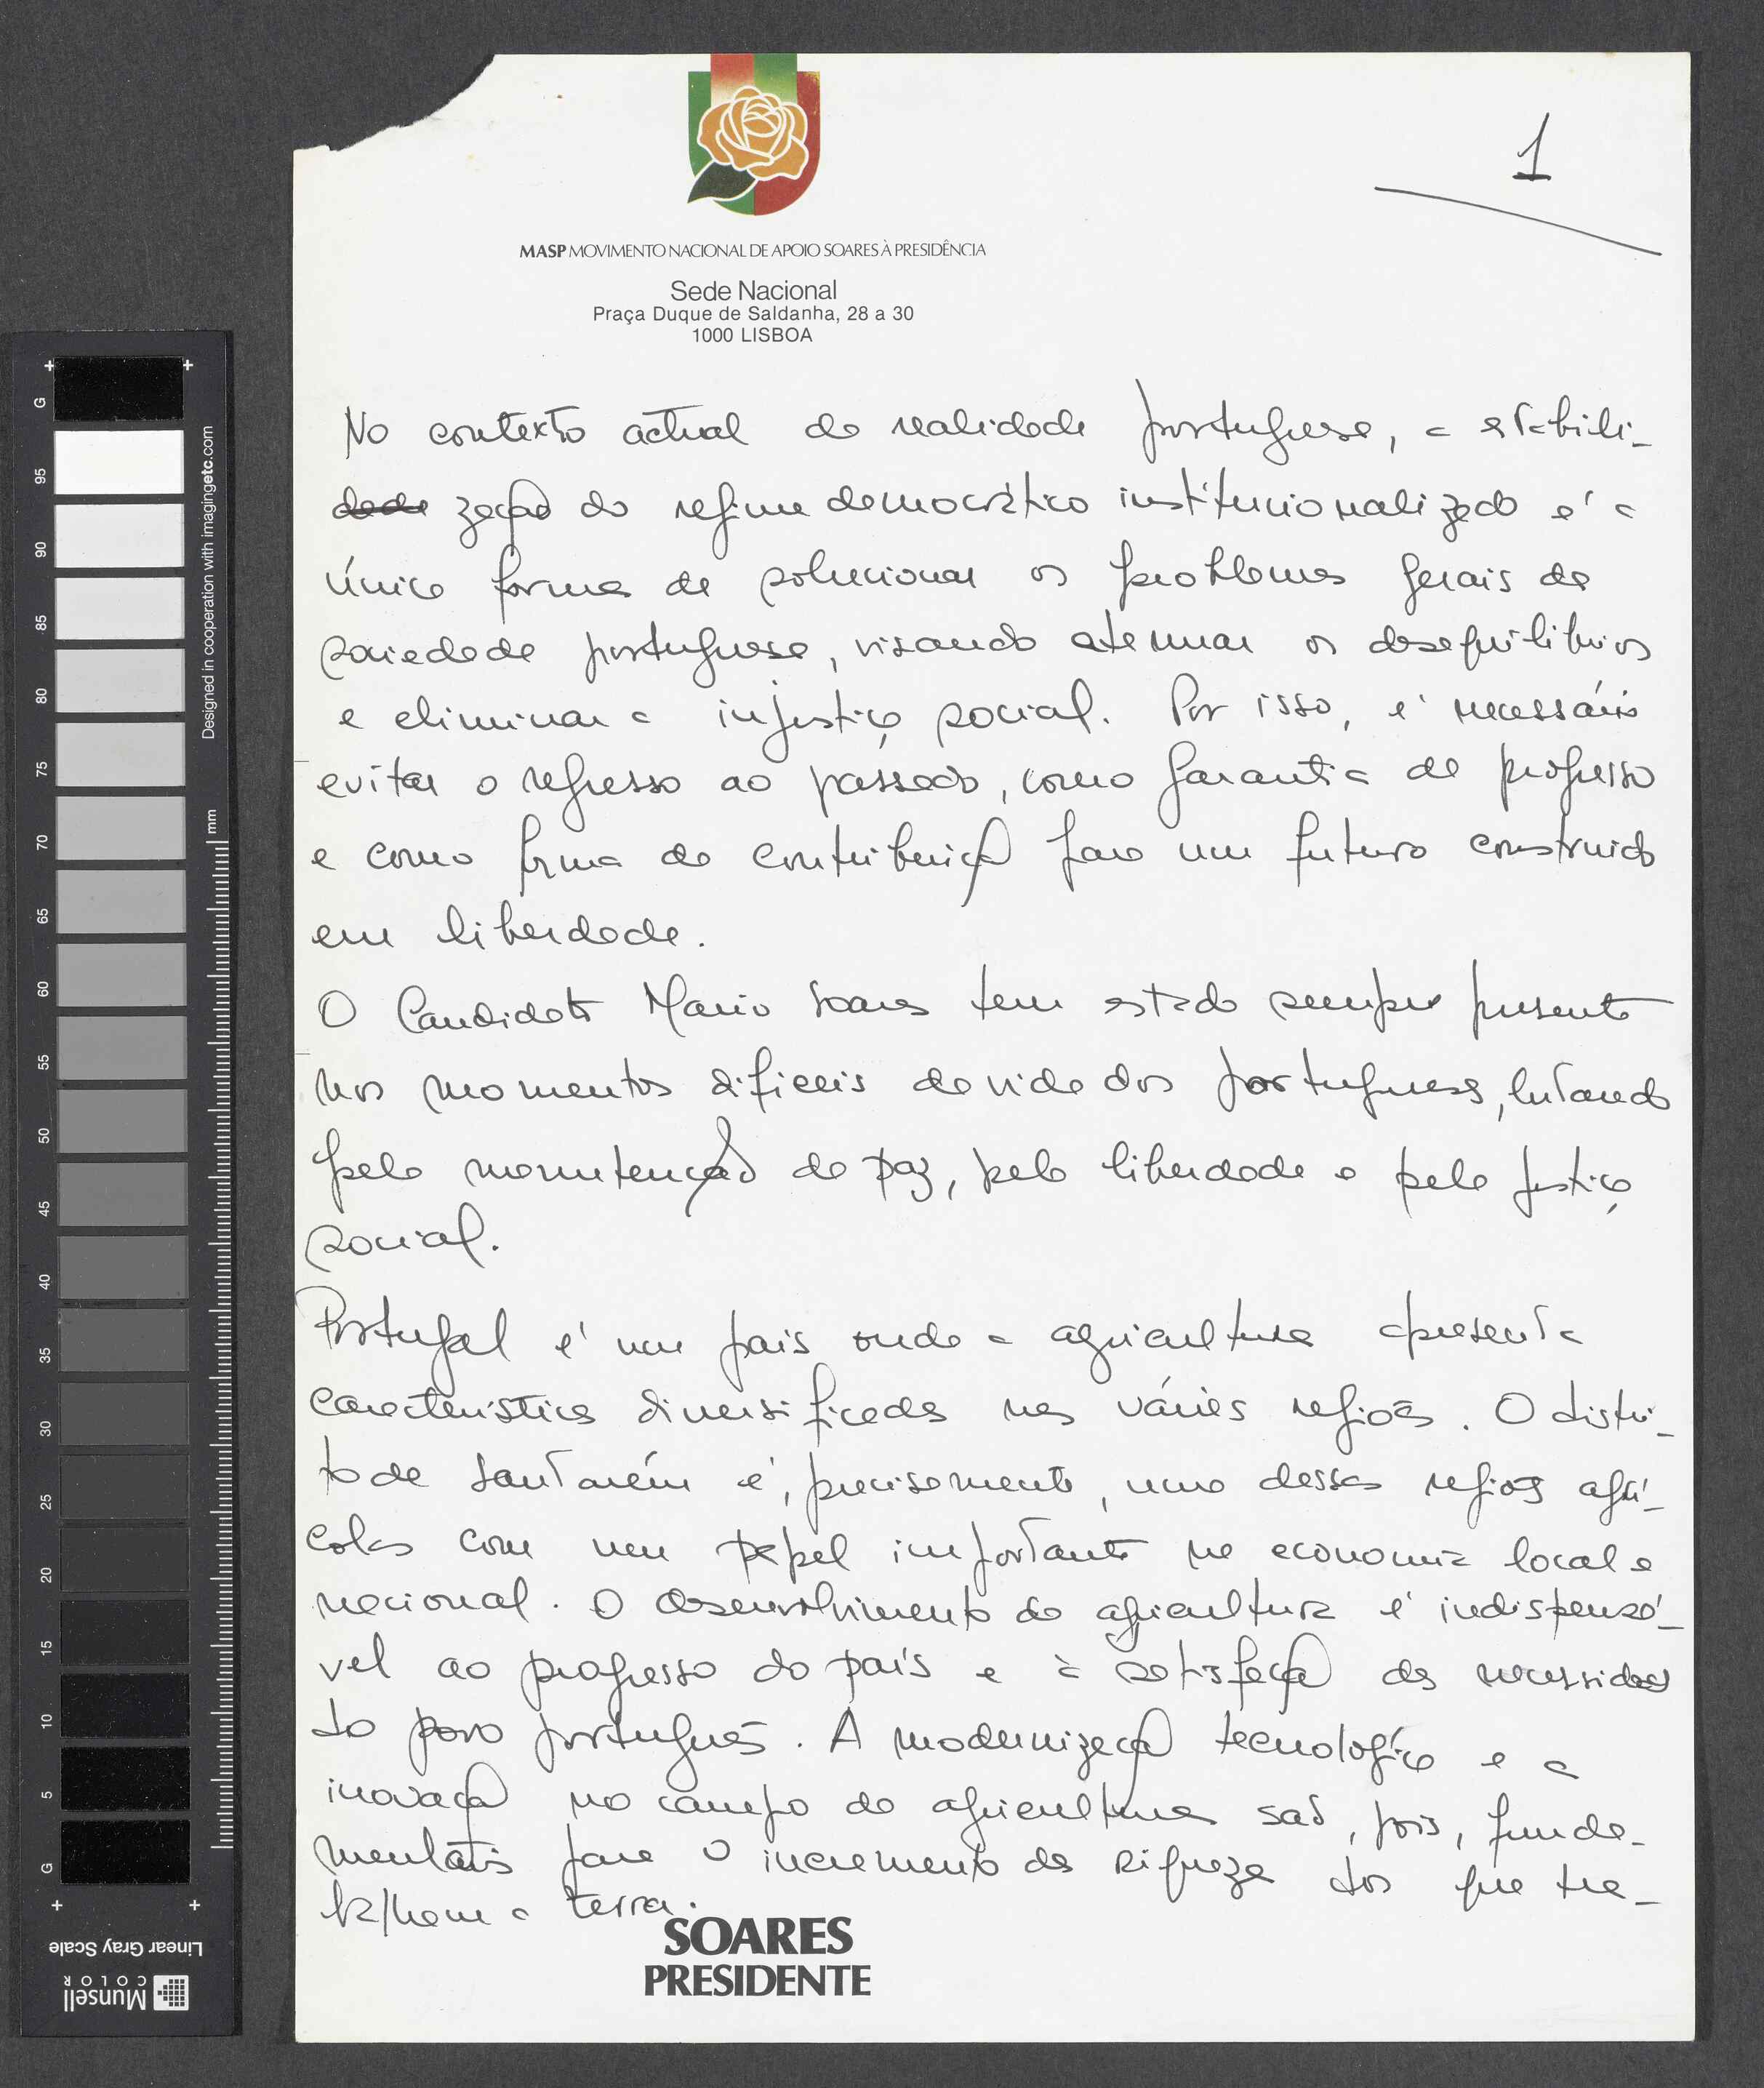 1
MASP MOVIMENTO NACIONAL DE APOIO SOARES À PRESIDÊNCIA
Sede Nacional
Praça Duque de Saldanha, 28 a 30
1000 LISBOA
No contexto actual da realidade portuguesa, a estabili-
dade zação do regime democrático institucionalizado é a
única forma de solucionar os problemas gerais da
sociedade portuguesa, visando atenuar os desequilibrios
e eliminar a injustiça social. Por isso, é necessário
evitar o regresso ao passado, como garantia de progresso
e como forma de contribuição para um futuro construido
em liberdade.
O Candidato Mario Soares tem estado sempre presente
nos momentos dificeis da vida dos portugueses, lutando
pela manutenção da paz, pela liberdade e pela justiça
social.
Portugal é um pais onde a agricultura apresenta
caracteristicas diversificadas nas várias regiões. O distri-
to de Santarém é, precisamente, uma dessas regiões agrí-
colas com um papel importante na economia local e
nacional. O desenvolvimento da agricultura é indispensá-
vel ao progresso do país e à satisfação das necessidades
do povo português. A modernização tecnológica e a
inovação no campo da agricultura são, pois, funda-
mentais para o incremento da riqueza dos que tra-
balham a terra.
SOARES
PRESIDENTE
G
95
90
85
80
75
70
65
60
55
50
45
40
35
30
25
20
15
10
5
G
mm
Designed in cooperation with imagingetc.com
Linear Gray Scale
Munsell
COLOR